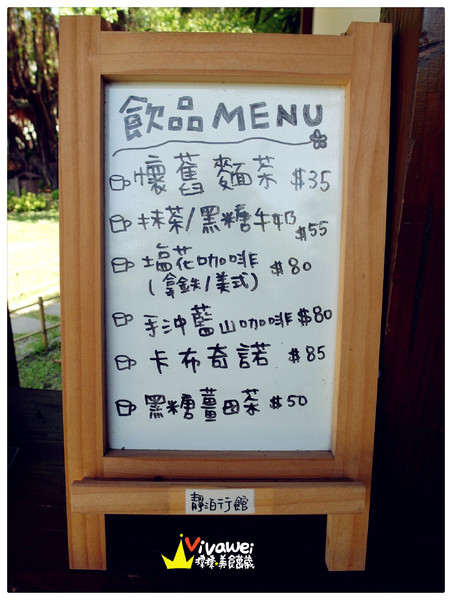 飲品MENU
懷舊麵茶 $35
抹茶/黑糖牛奶 $55
塩花咖啡 $80
(拿鉄/美式)
手沖藍山咖啡 $80
卡布奇諾 $85
黑糖薑母茶 $50
靜泊行館
Vivawei
美食舘藏